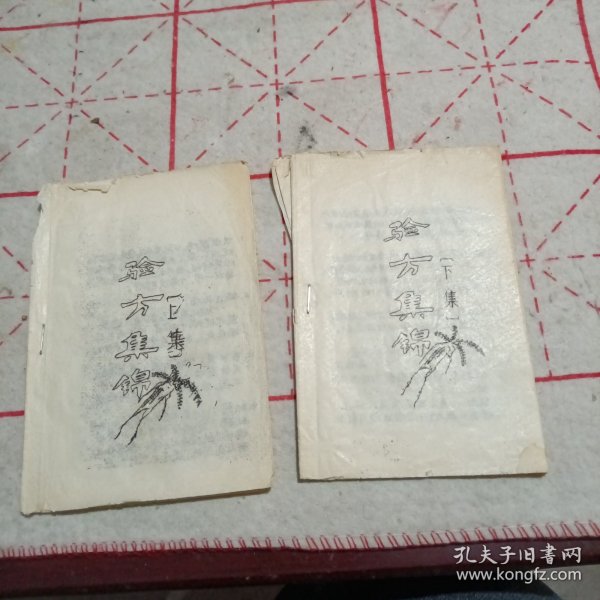 验方集锦
（上集）
验方集锦
（下集）
孔夫子旧书网
www.kongfz.com